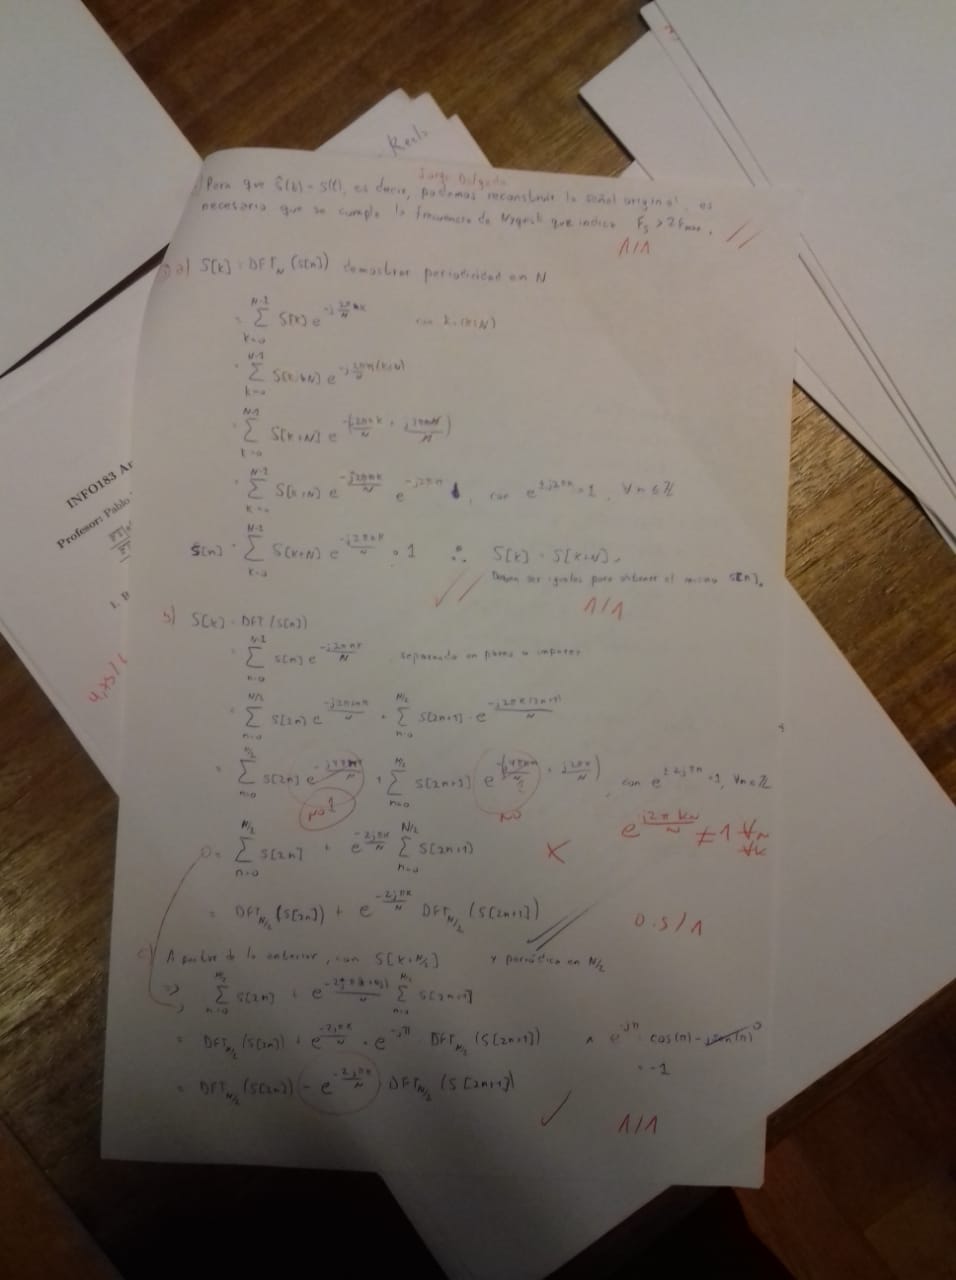 Recl
Jorge Delgado
Para que ŝ(t) = s(t), es decir, podamos reconstruir la señal original, es
necesario que se cumpla la frecuencia de Nyquist que indica Fs > 2Fmax.
1/1
a) S[k] = DFT_N (s[n]) demostrar periodicidad en N
= Σ_{k=0}^{N-1} S[k] e^{-j 2π nk/N} con k = (k+N)
= Σ_{k=0}^{N-1} S[k+N] e^{-j 2πn(k+N)/N}
= Σ_{k=0}^{N-1} S[k+N] e^{-(j2πnk/N + j2πnN/N)}
= Σ_{k=0}^{N-1} S[k+N] e^{-j2πnk/N} e^{-j2πn}, con e^{±j2πn} = 1, ∀n∈ℤ
s[n] = Σ_{k=0}^{N-1} S[k+N] e^{-j2πnk/N} · 1 ∴ S[k] = S[k+N].
Deben ser iguales para obtener el mismo s[n].
1/1
INFO183 An
Profesor: Pablo
4,75/6
b) S[k] = DFT (s[n])
= Σ_{n=0}^{N-1} s[n] e^{-j2πnk/N} separando en pares e impares
= Σ_{n=0}^{N/2} s[2n] e^{-j2π2nk/N} + Σ_{n=0}^{N/2} s[2n+1] · e^{-j2πk(2n+1)/N}
= Σ_{n=0}^{N/2} s[2n] e^{-j4πkn/N} + Σ_{n=0}^{N/2} s[2n+1] e^{-(j4πkn/N + j2πk/N)} con e^{±2jπn} = 1, ∀n∈ℤ
NO 1 NO
e^{j2πkn/N} ≠ 1 ∀n ∀k
= Σ_{n=0}^{N/2} s[2n] + e^{-2jπk/N} Σ_{n=0}^{N/2} s[2n+1]
= DFT_{N/2} (s[2n]) + e^{-2jπk/N} DFT_{N/2} (s[2n+1])
0.5/1
c) A partir de lo anterior, con S[k+N/2] y periódica en N/2
⇒ Σ_{n=0}^{N/2} s[2n] + e^{-2jπ(k+N/2)/N} Σ_{n=0}^{N/2} s[2n+1]
= DFT_{N/2} (s[2n]) + e^{-2jπk/N} · e^{-jπ} DFT_{N/2} (s[2n+1]) ∧ e^{-jπ} = cos(π) - j sen(π) 0
= -1
= DFT_{N/2} (s[2n]) - e^{-2jπk/N} DFT_{N/2} (s[2n+1])
1/1